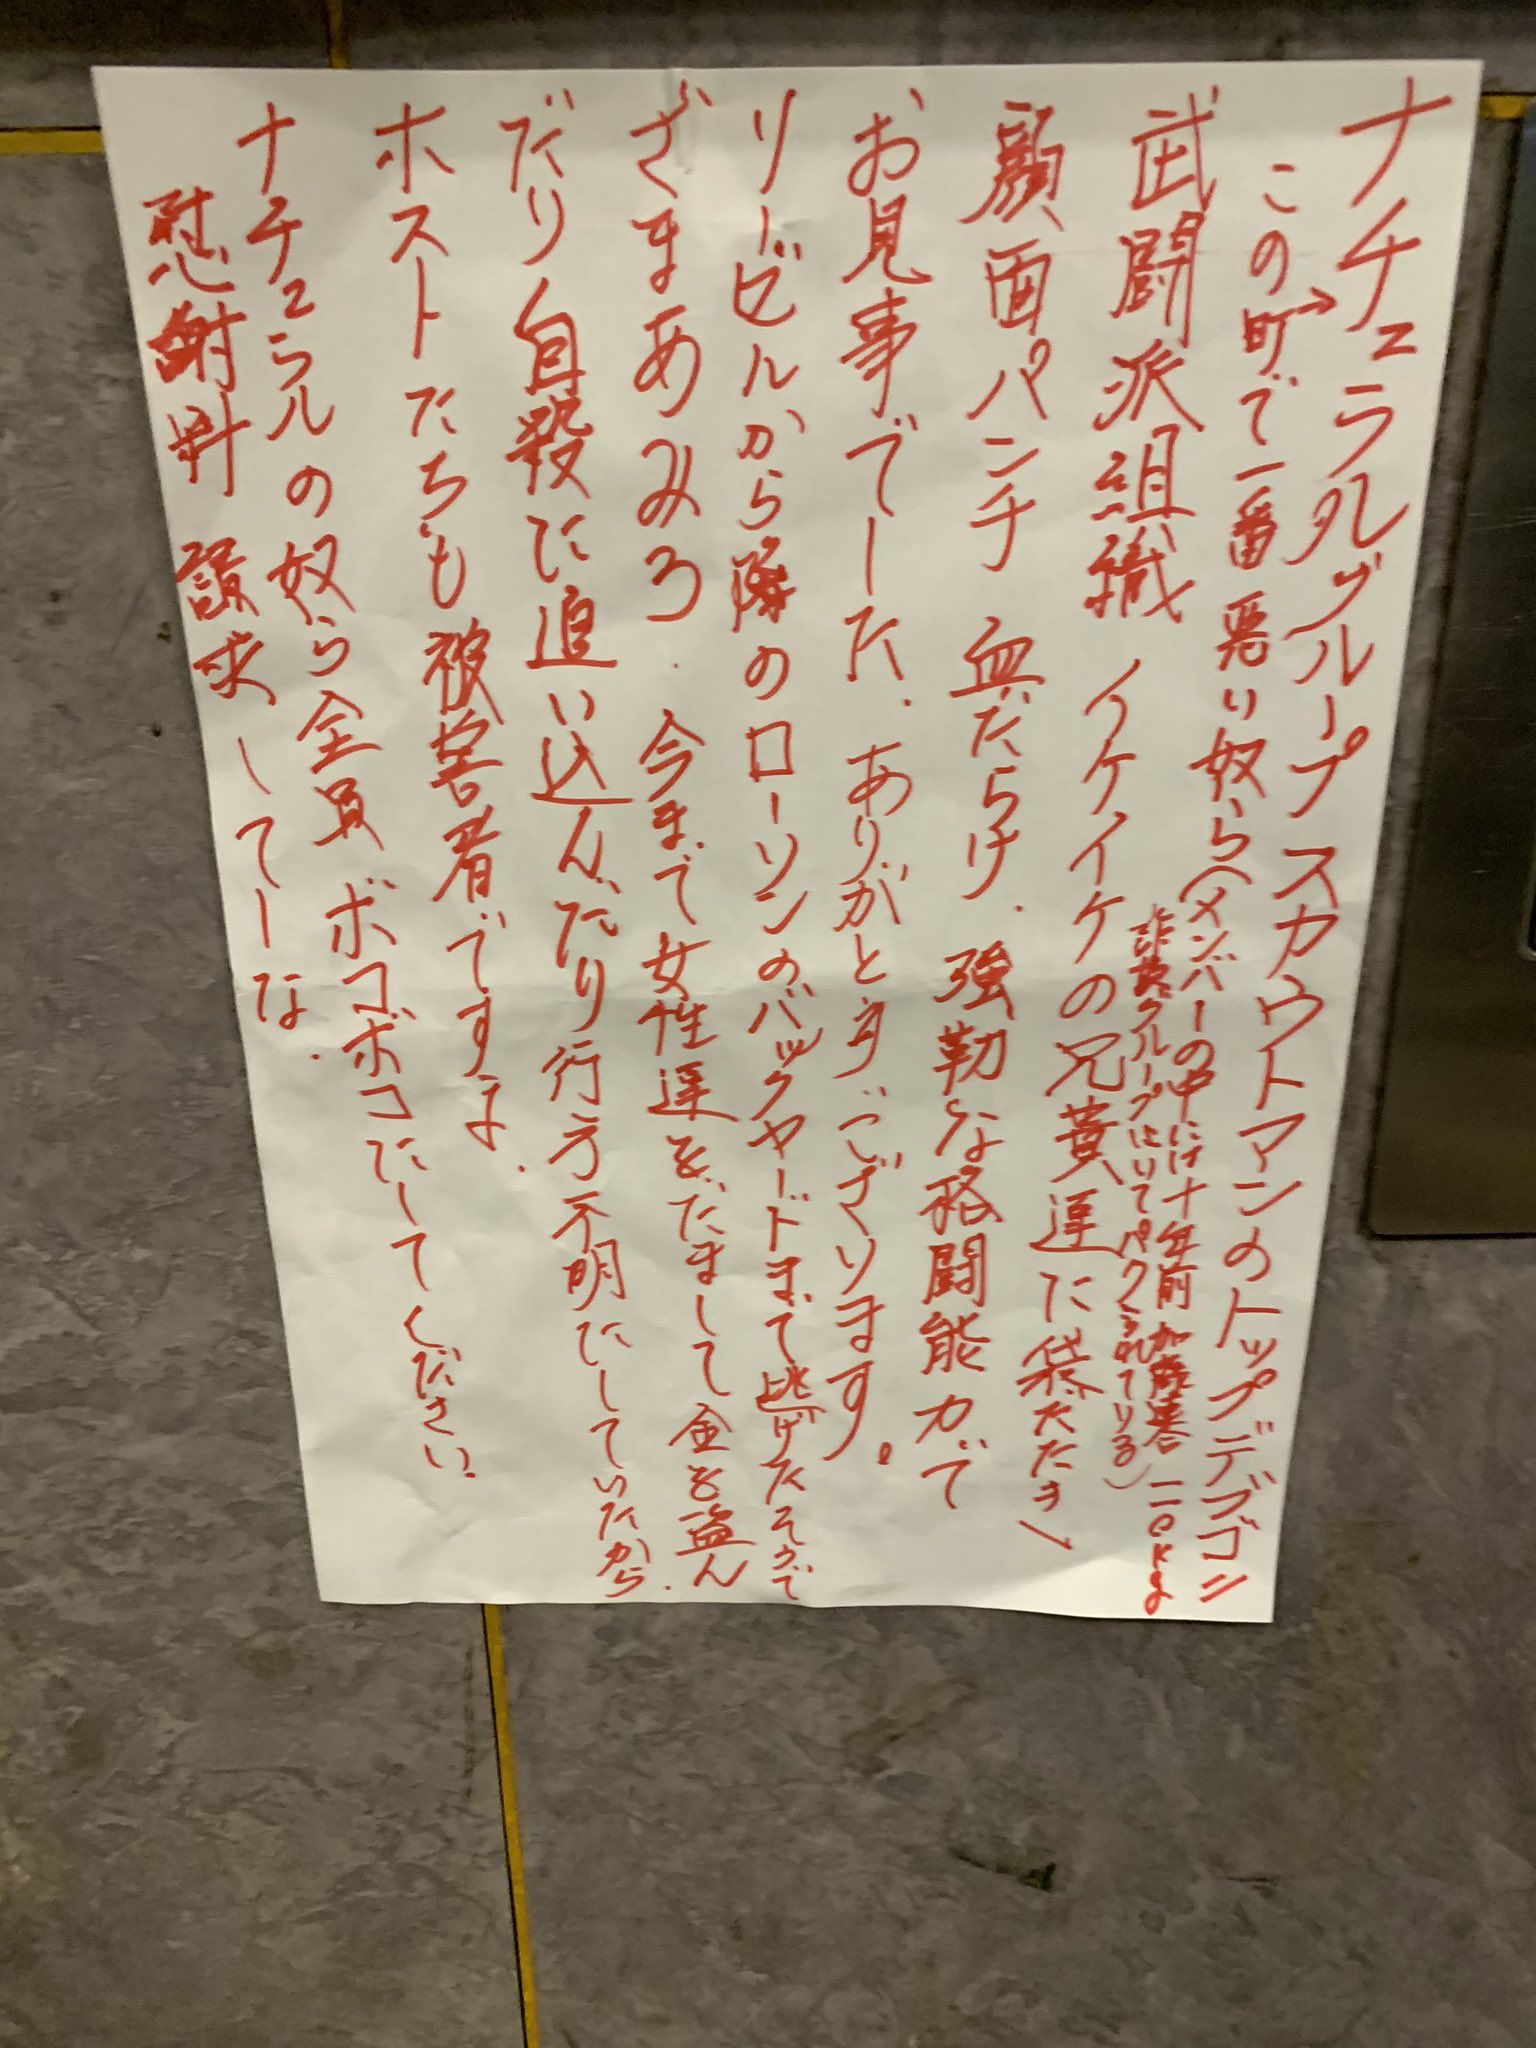 ナチュラルグループスカウトマンのトップデブゴン
→この町で一番悪い奴ら(メンバーの中には十年前 加藤
詐欺グループにいてパクられている)
武闘派組織 イケイケの兄貴達に袋だたき
顔面パンチ 血だらけ. 強靭な格闘能力で
お見事でした. ありがとうございます。
リービルから隣のローソンのバックヤードまで逃げたそうで
ざまあみろ. 今まで女性達をだまして金を盗ん
だり自殺に追い込んだり行方不明にしていたから.
ホストたちも被害者ですよ.
ナチュラルの奴ら全員ボコボコにしてください.
慰謝料 請求してーな.